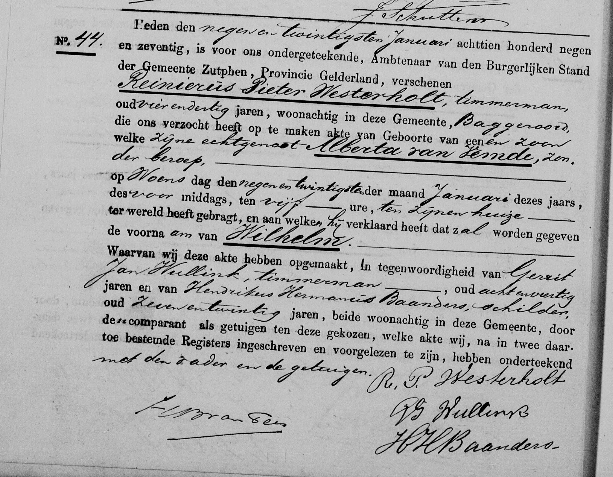 J. Schutten
No. 44.
Heden den negen en twintigsten Januari achttien honderd negen
en zeventig, is voor ons ondergeteekende, Ambtenaar van den Burgerlijken Stand
der Gemeente Zutphen, Provincie Gelderland, verschenen
Reinierus Pieter Westerholt, timmerman,
oud vierendertig jaren, woonachtig in deze Gemeente, Baggeroord,
die ons verzocht heeft op te maken akte van Geboorte van eenen zoon
welke zijne echtgenoot Alberta van Zemde, zon
der beroep,
op Woens dag den negen en twintigsten der maand Januari dezes jaars,
des voor middags, ten vijf ure, ten zijnen huize
ter wereld heeft gebragt, en aan welken hij verklaard heeft dat zal worden gegeven
de voorna am van Wilhelm.
Waarvan wij deze akte hebben opgemaakt, in tegenwoordigheid van Gerrit
Jan Wullink, timmerman, oud achtenveertig
jaren en van Hendrikus Hermanus Baanders, schilder,
oud zevenentwintig jaren, beide woonachtig in deze Gemeente, door
den comparant als getuigen ten deze gekozen, welke akte wij, na in twee daar-
toe bestemde Registers ingeschreven en voorgelezen te zijn, hebben onderteekend
met den vader en de getuigen.
R. P. Westerholt
Wullink
HHBaanders